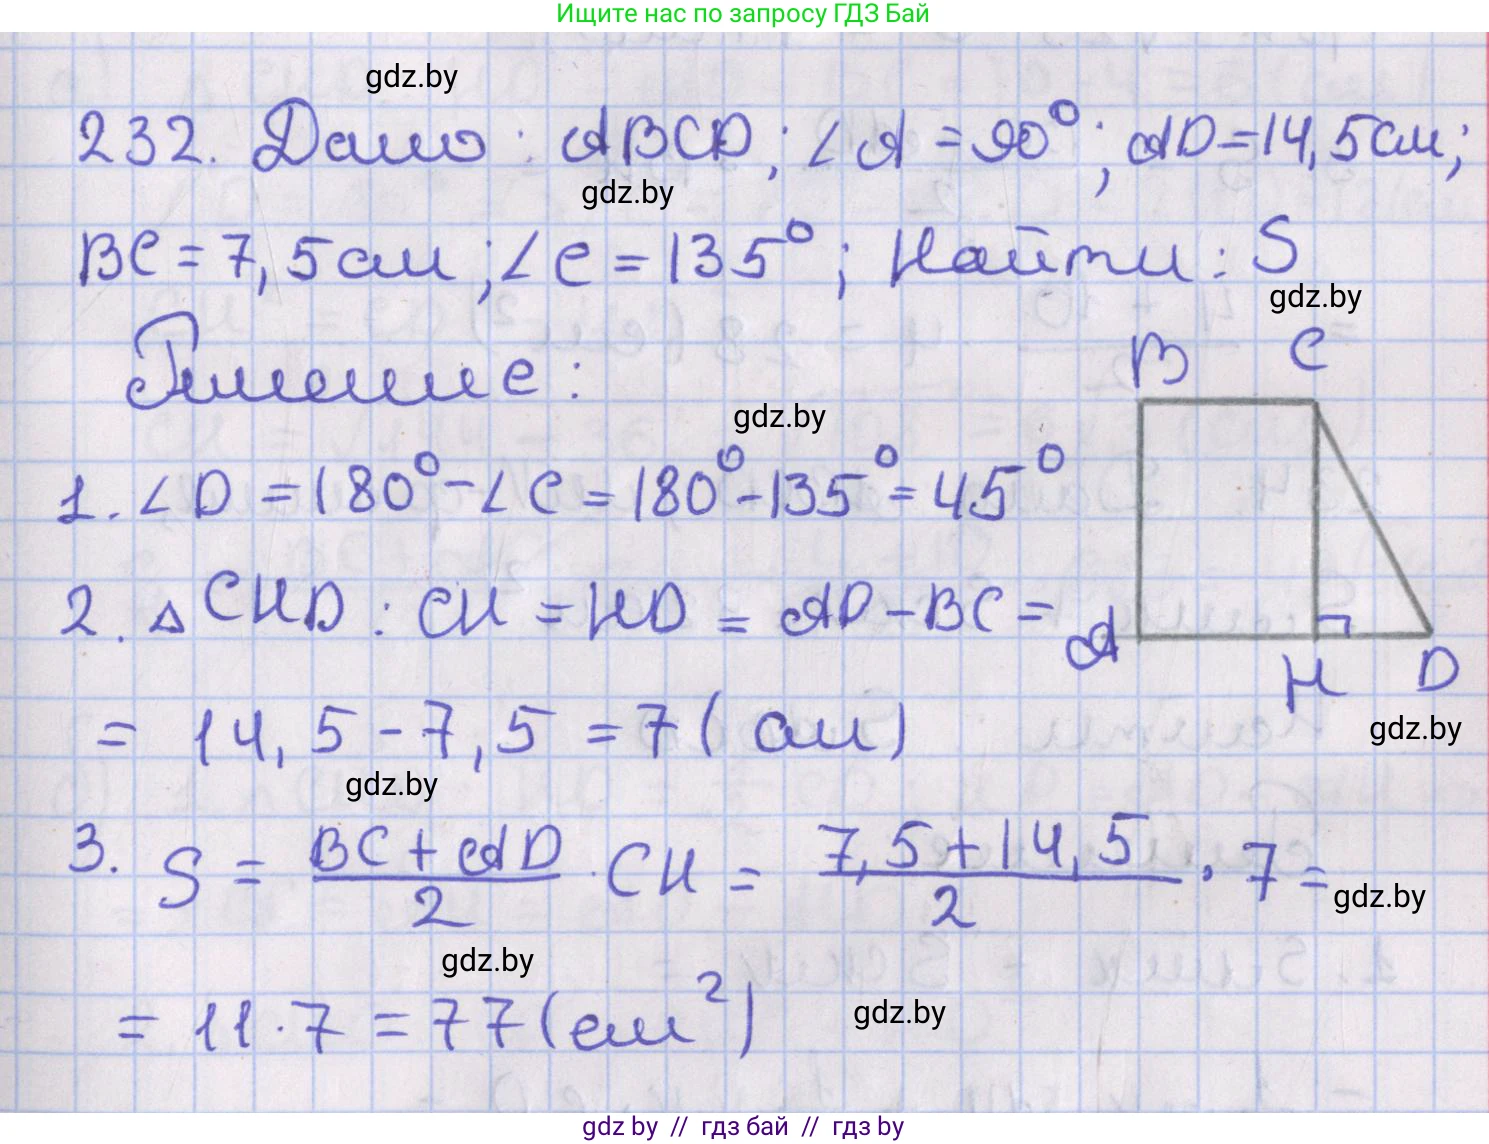 Ищите нас по запросу ГДЗ Бай
gdz.by
232. Дано: ABCD; ∠A = 90°; AD = 14,5 см;
gdz.by
BC = 7,5 см; ∠C = 135°; Найти: S
gdz.by
Решение:
B C
gdz.by
1. ∠D = 180° - ∠C = 180° - 135° = 45°
2. △CHD: CH = HD = AD - BC =
A H D
gdz.by
= 14,5 - 7,5 = 7 (см)
gdz.by
3. S = (BC + AD)/2 · CH = (7,5 + 14,5)/2 · 7 =
gdz.by
gdz.by
= 11 · 7 = 77 (см²)
gdz.by
gdz by // гдз бай // гдз by